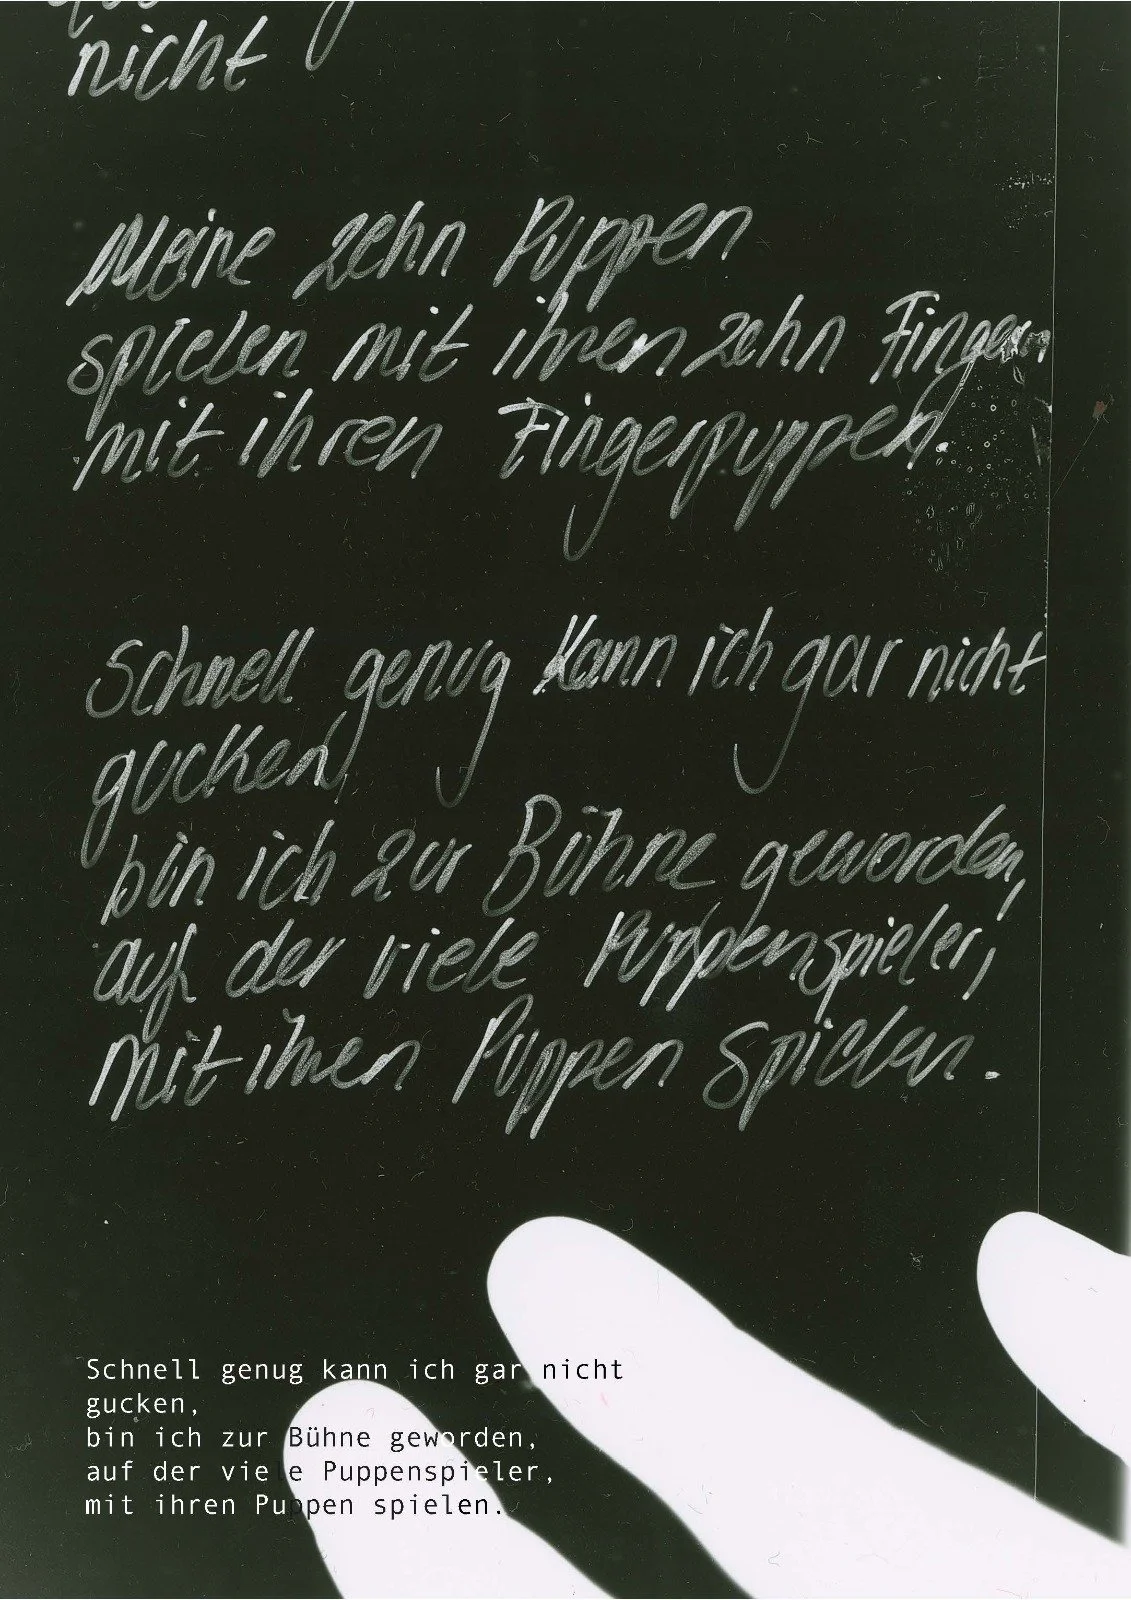 nicht
Meine zehn Puppen
spielen mit ihren zehn Fingern
mit ihren Fingerpuppen.
Schnell genug kann ich gar nicht
gucken,
bin ich zur Bühne geworden,
auf der viele Puppenspieler,
mit ihren Puppen spielen.
Schnell genug kann ich gar nicht
gucken,
bin ich zur Bühne geworden,
auf der viele Puppenspieler,
mit ihren Puppen spielen.